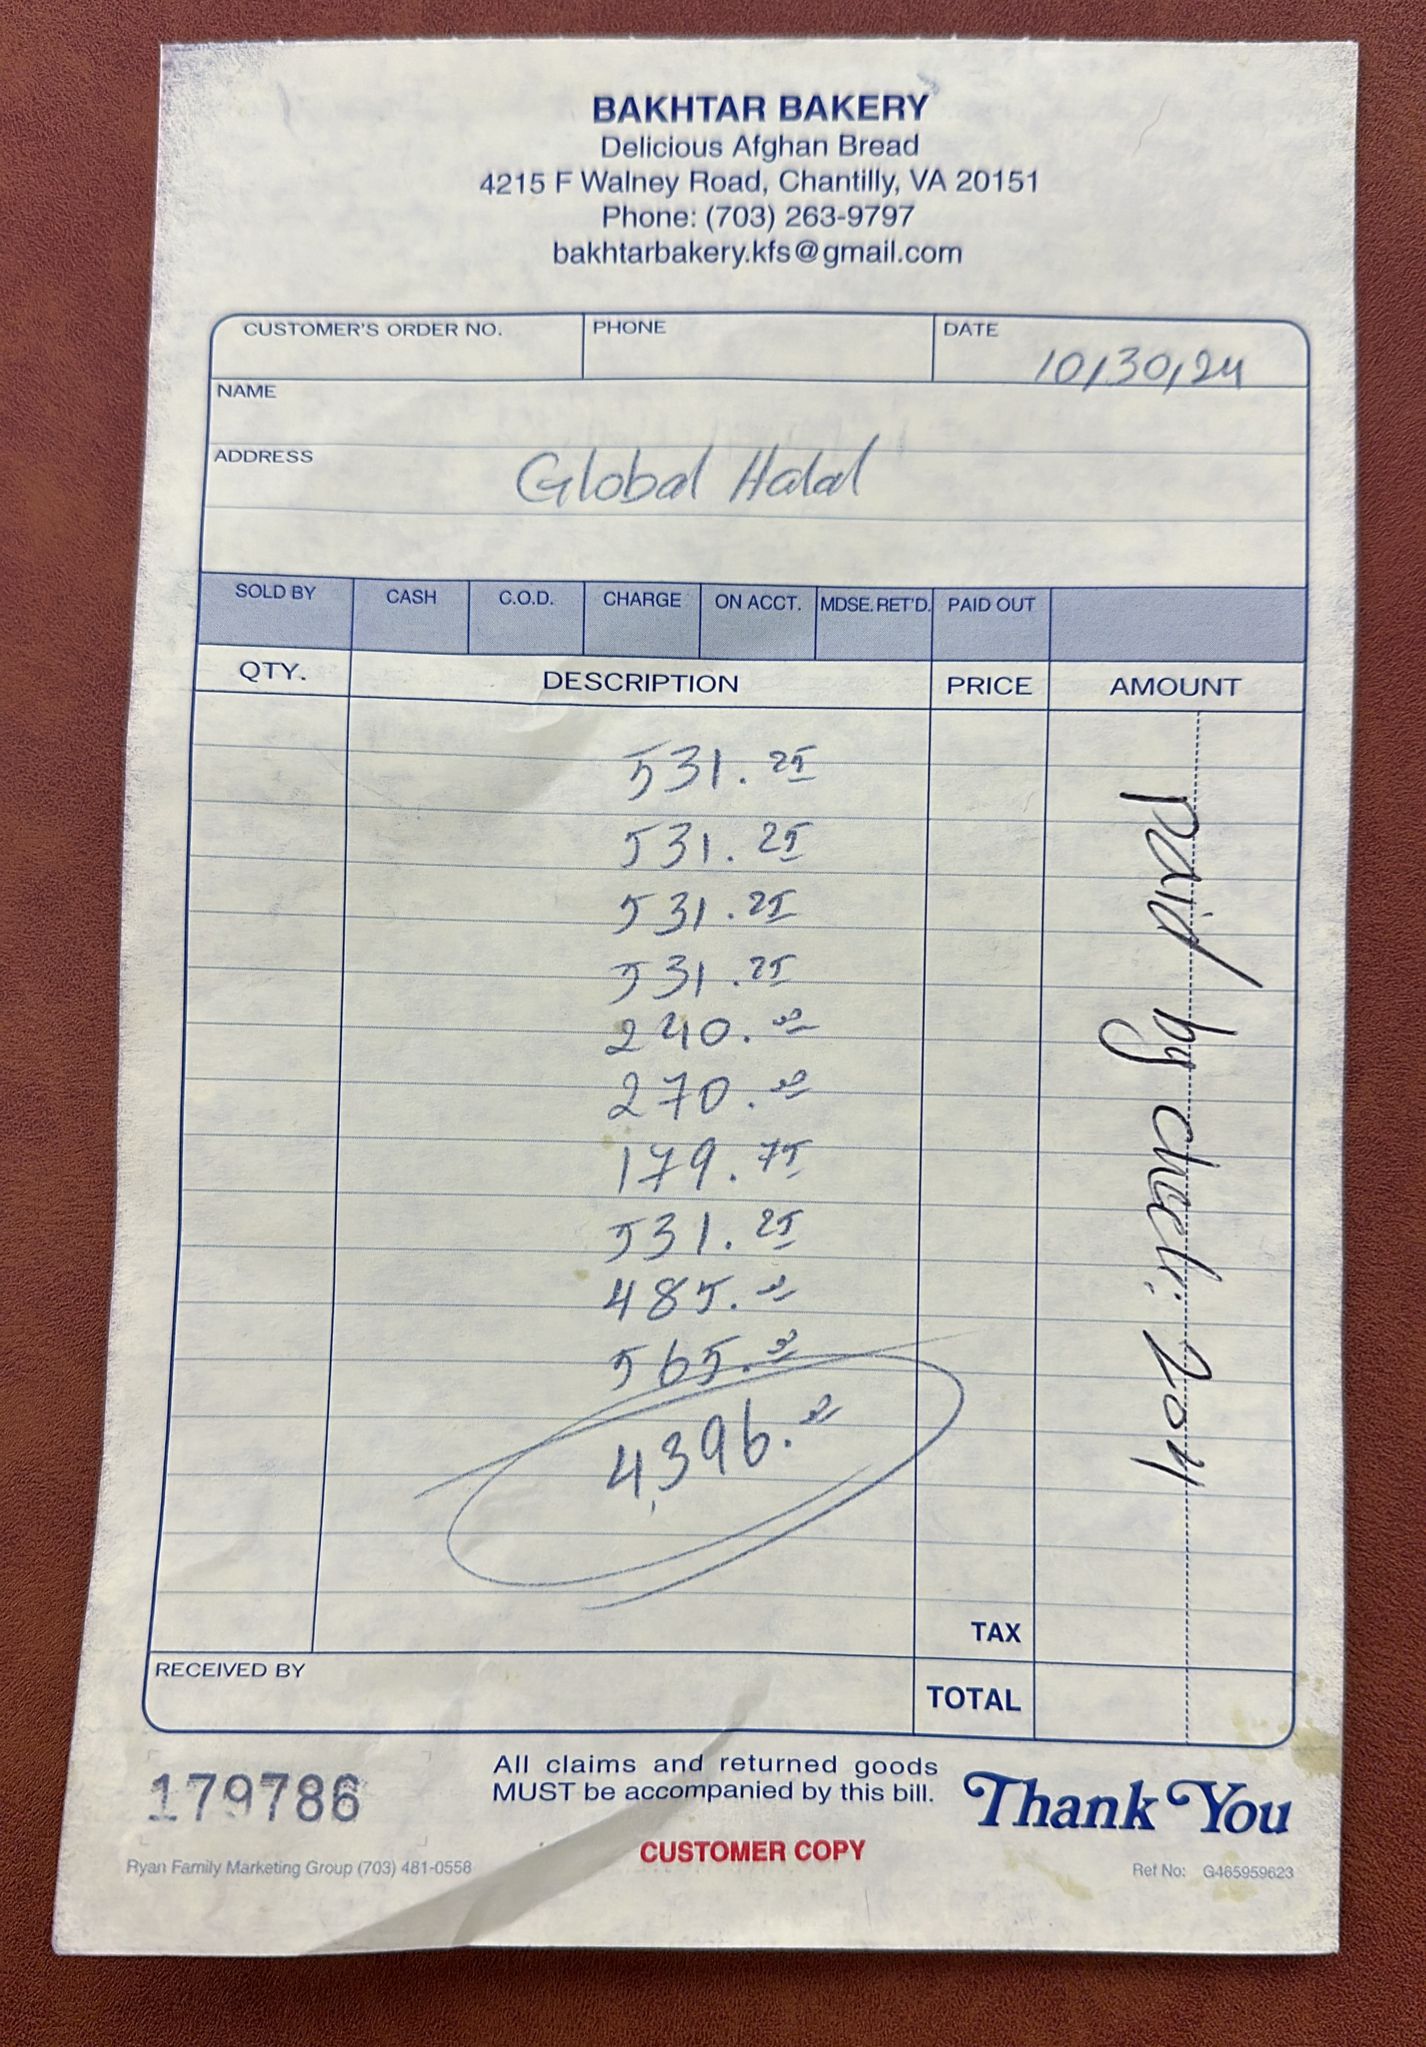 BAKHTAR BAKERY
Delicious Afghan Bread
4215 F Walney Road, Chantilly, VA 20151
Phone: (703) 263-9797
bakhtarbakery.kfs@gmail.com
CUSTOMER'S ORDER NO. PHONE DATE 10/30/24
NAME
ADDRESS Global Halal
SOLD BY CASH C.O.D. CHARGE ON ACCT. MDSE. RET'D. PAID OUT
QTY. DESCRIPTION PRICE AMOUNT
531.25
531.25
531.25
531.25
240.00
270.00
179.75
531.25
485.00
565.00
4,396.00
paid by check: 2014
TAX
RECEIVED BY TOTAL
179786
All claims and returned goods
MUST be accompanied by this bill.
Thank You
CUSTOMER COPY
Ryan Family Marketing Group (703) 481-0558
Ref No: G465959623